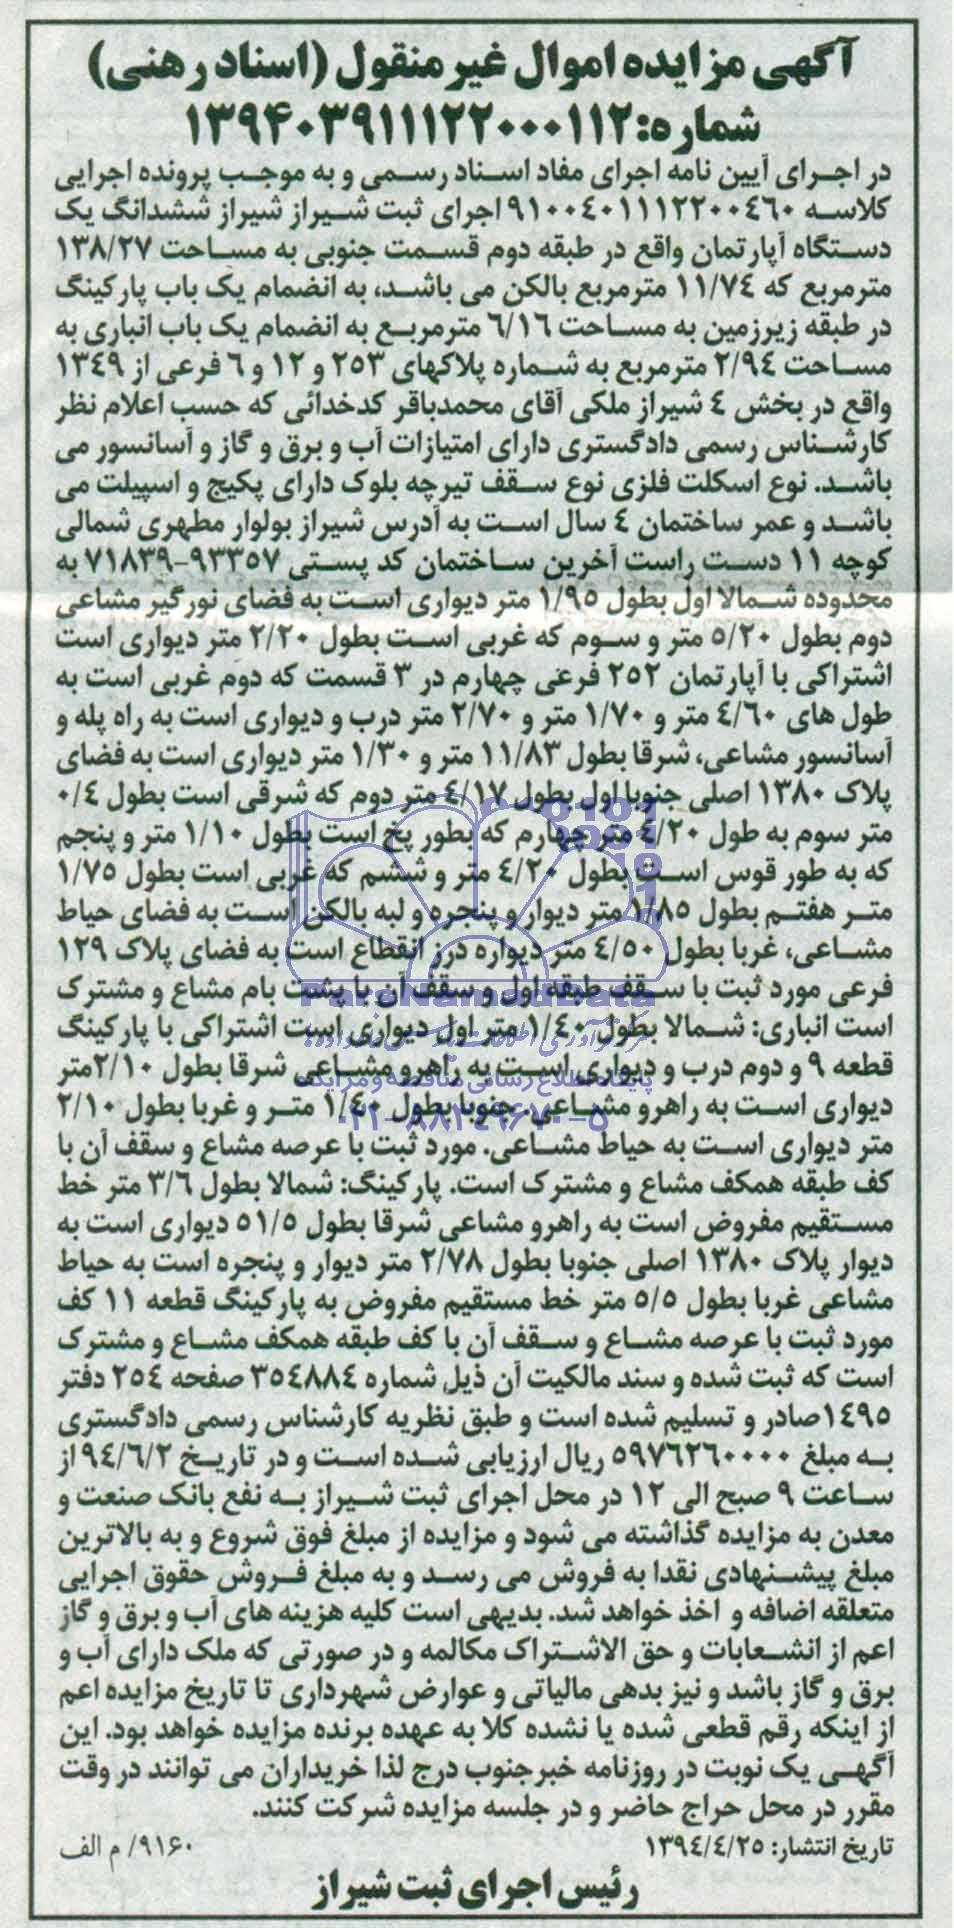 آگهی مزایده اموال غیر منقول (اسناد رهنی)
شماره: ۱۳۹۴۰۳۹۱۱۱۲۲۰۰۰۱۱۲
در اجرای آیین نامه اجرای مفاد اسناد رسمی و به موجب پرونده اجرایی
کلاسه ۹۱۰۰۴۰۱۱۱۲۲۰۰۴۶۰ اجرای ثبت شیراز شیراز ششدانگ یک
دستگاه آپارتمان واقع در طبقه دوم قسمت جنوبی به مساحت ۱۳۸/۲۷
مترمربع که ۱۱/۷۴ مترمربع بالکن می باشد، به انضمام یک باب پارکینگ
در طبقه زیرزمین به مساحت ۶/۱۶ مترمربع به انضمام یک باب انباری به
مساحت ۲/۹۴ مترمربع به شماره پلاکهای ۲۵۳ و ۱۲ و ۶ فرعی از ۱۳۴۹
واقع در بخش ۴ شیراز ملکی آقای محمدباقر کدخدائی که حسب اعلام نظر
کارشناس رسمی دادگستری دارای امتیازات آب و برق و گاز و آسانسور می
باشد. نوع اسکلت فلزی نوع سقف تیرچه بلوک دارای پکیج و اسپیلت می
باشد و عمر ساختمان ۴ سال است به آدرس شیراز بولوار مطهری شمالی
کوچه ۱۱ دست راست آخرین ساختمان کد پستی ۹۳۳۵۷-۷۱۸۳۹ به
محدوده شمالا اول بطول ۱/۹۵ متر دیواری است به فضای نورگیر مشاعی
دوم بطول ۵/۲۰ متر و سوم که غربی است بطول ۲/۲۰ متر دیواری است
اشتراکی با آپارتمان ۲۵۲ فرعی چهارم در ۳ قسمت که دوم غربی است به
طول های ۴/۶۰ متر و ۱/۷۰ متر و ۲/۷۰ متر درب و دیواری است به راه پله و
آسانسور مشاعی، شرقا بطول ۱۱/۸۳ متر و ۱/۳۰ متر دیواری است به فضای
پلاک ۱۳۸۰ اصلی جنوبا اول بطول ۴/۱۷ متر دوم که شرقی است بطول ۰/۴
متر سوم به طول ۴/۲۰ متر چهارم که بطور پخ است بطول ۱/۱۰ متر و پنجم
که به طور قوس است بطول ۴/۲۰ متر و ششم که غربی است بطول ۱/۷۵
متر هفتم بطول ۱/۸۵ متر دیوار و پنجره و لبه بالکن است به فضای حیاط
مشاعی، غربا بطول ۴/۵۰ متر دیواره درز انقطاع است به فضای پلاک ۱۲۹
فرعی مورد ثبت با سقف طبقه اول و سقف آن با پشت بام مشاع و مشترک
است انباری: شمالا بطول ۱/۴۰ متر اول دیواری است اشتراکی با پارکینگ
قطعه ۹ و دوم درب و دیواری است به راهرو مشاعی شرقا بطول ۲/۱۰متر
پایگاه اطلاع رسانی مناقصه و مزایده
دیواری است به راهرو مشاعی. جنوبا بطول ۱/۴۰ متر و غربا بطول ۲/۱۰
۰۲۱-۸۸۳۴۹۶۷۰-۵
متر دیواری است به حیاط مشاعی. مورد ثبت با عرصه مشاع و سقف آن با
کف طبقه همکف مشاع و مشترک است. پارکینگ: شمالا بطول ۳/۶ متر خط
مستقیم مفروض است به راهرو مشاعی شرقا بطول ۵۱/۵ دیواری است به
دیوار پلاک ۱۳۸۰ اصلی جنوبا بطول ۲/۷۸ متر دیوار و پنجره است به حیاط
مشاعی غربا بطول ۵/۵ متر خط مستقیم مفروض به پارکینگ قطعه ۱۱ کف
مورد ثبت با عرصه مشاع و سقف آن با کف طبقه همکف مشاع و مشترک
است که ثبت شده و سند مالکیت آن ذیل شماره ۳۵۴۸۸۴ صفحه ۲۵۴ دفتر
۱۴۹۵صادر و تسلیم شده است و طبق نظریه کارشناس رسمی دادگستری
به مبلغ ۵۹۷۶۲۶۰۰۰۰ ریال ارزیابی شده است و در تاریخ ۹۴/۶/۲ از
ساعت ۹ صبح الی ۱۲ در محل اجرای ثبت شیراز به نفع بانک صنعت و
معدن به مزایده گذاشته می شود و مزایده از مبلغ فوق شروع و به بالاترین
مبلغ پیشنهادی نقدا به فروش می رسد و به مبلغ فروش حقوق اجرایی
متعلقه اضافه و اخذ خواهد شد. بدیهی است کلیه هزینه های آب و برق و گاز
اعم از انشعابات و حق الاشتراک مکالمه و در صورتی که ملک دارای آب و
برق و گاز باشد و نیز بدهی مالیاتی و عوارض شهرداری تا تاریخ مزایده اعم
از اینکه رقم قطعی شده یا نشده کلا به عهده برنده مزایده خواهد بود. این
آگهی یک نوبت در روزنامه خبرجنوب درج لذا خریداران می توانند در وقت
مقرر در محل حراج حاضر و در جلسه مزایده شرکت کنند.
تاریخ انتشار: ۱۳۹۴/۴/۲۵ ۹۱۶۰/ م الف
رئیس اجرای ثبت شیراز